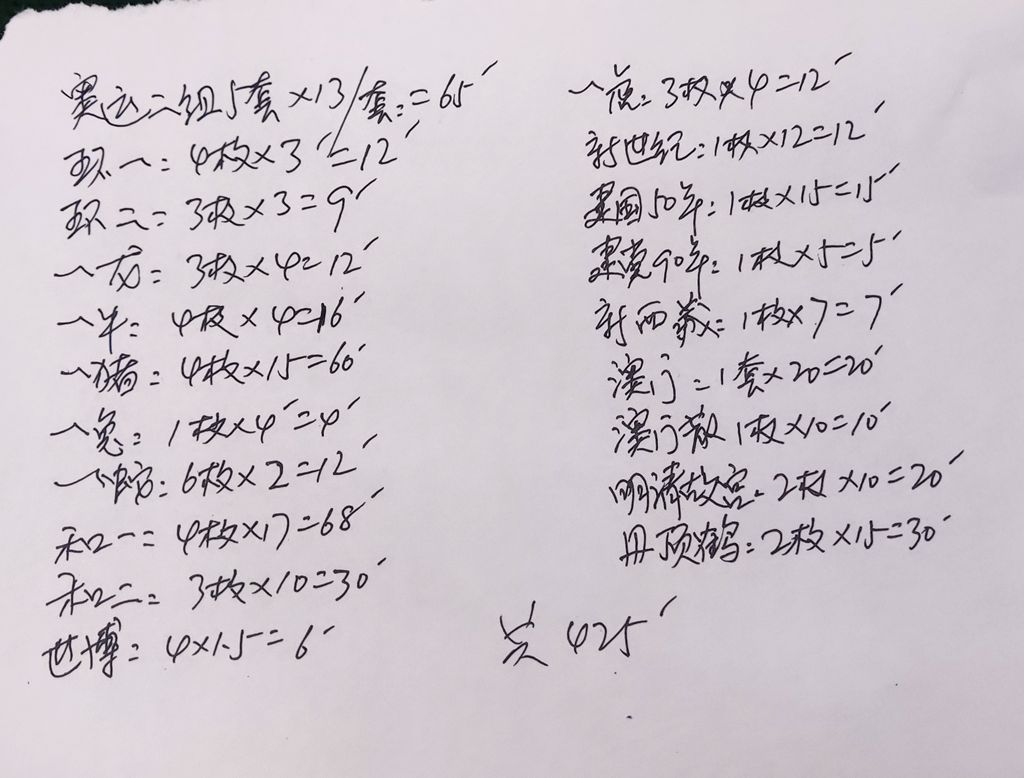 奥运二组5套×13/套:=65
环一:4枚×3=12
环二:3枚×3=9
一龙:3枚×4=12
一牛:4枚×4=16
一猪:4枚×15=60
一兔:1枚×4=4
6枚×2=12
和一:4枚×17=68
和二:3枚×10=30
世博:4×1.5=6
3枚×4=12
新世纪:1枚×12=12
建国50年:1枚×15=15
建党90年:1枚×5=5
新西藏:1枚×7=7
澳门:1套×20=20
澳门散1枚×10=10
明清故宫:2枚×10=20
丹顶鹤:2枚×15=30
共425